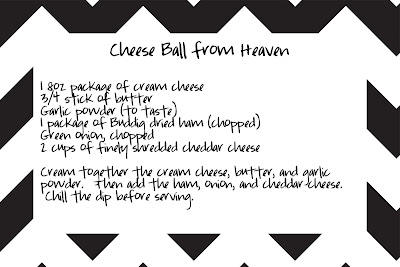 Cheese Ball from Heaven
1 8oz package of cream cheese
3/4 stick of butter
Garlic powder (to taste)
1 package of Buddig dried ham (chopped)
Green onion, chopped
2 cups of finely shredded cheddar cheese
Cream together the cream cheese, butter, and garlic
powder. Then add the ham, onion, and cheddar cheese.
Chill the dip before serving.